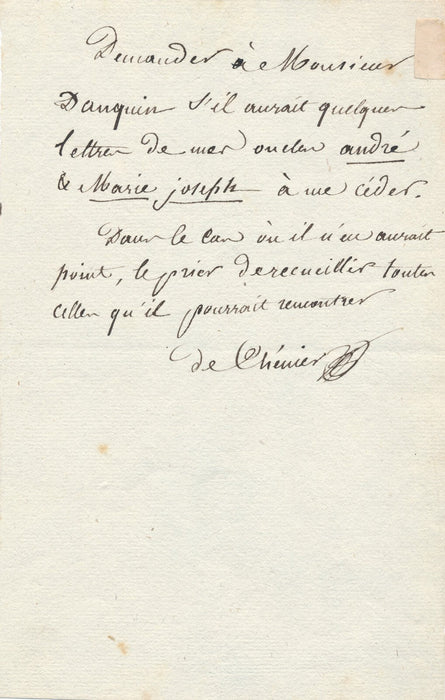 Demander à Monsieur
Danquin s'il aurait quelques
lettres de mes oncles andré
& Marie joseph à me céder.
Dans le cas où il n'en aurait
point, le prier de recueillir toutes
celles qu'il pourrait rencontrer
de Chénier